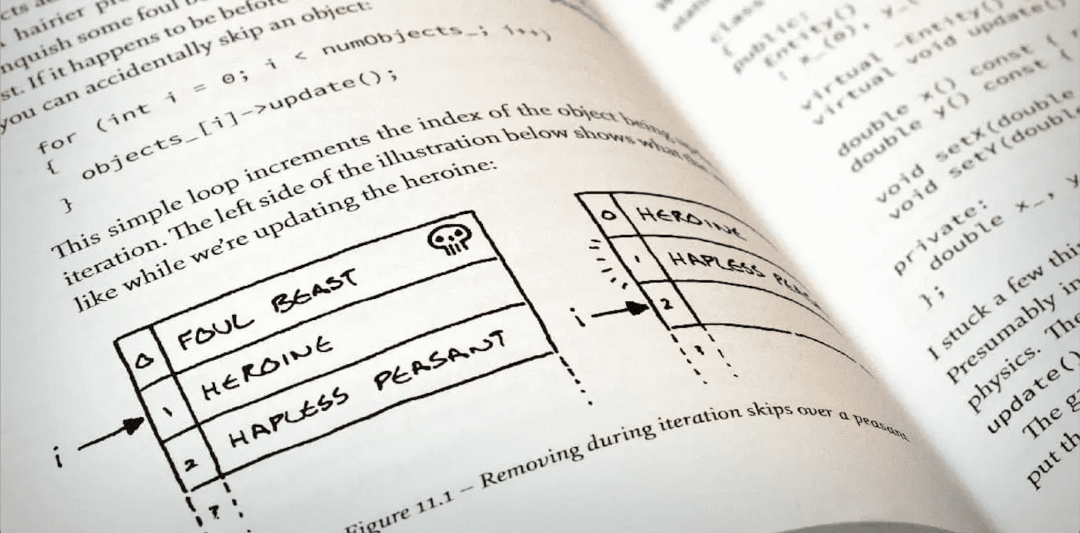 hairier
nquish some foul
st. If it happens to be before
you can accidentally skip an object:
for (int i = 0; i < numObjects_; i++)
{
objects_[i]->update();
}
This simple loop increments the index of the object being
iteration. The left side of the illustration below shows what
like while we're updating the heroine:
0 FOUL BEAST
1 HEROINE
2 HAPLESS PEASANT
?
i
0 HEROINE
1 HAPLESS
2
?
i
Figure 11.1 – Removing during iteration skips over a peasant
class
{
public:
Entity()
: x_(0), y_(
virtual ~Entity()
virtual void update()
double x() const {
double y() const {
void setX(double
void setY(double
private:
double x_, y
};
I stuck a few thi
Presumably in
physics. The
update()
The g
put th